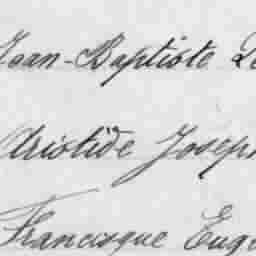 Jean-Baptiste
Aristide Joseph
Francisque Eug